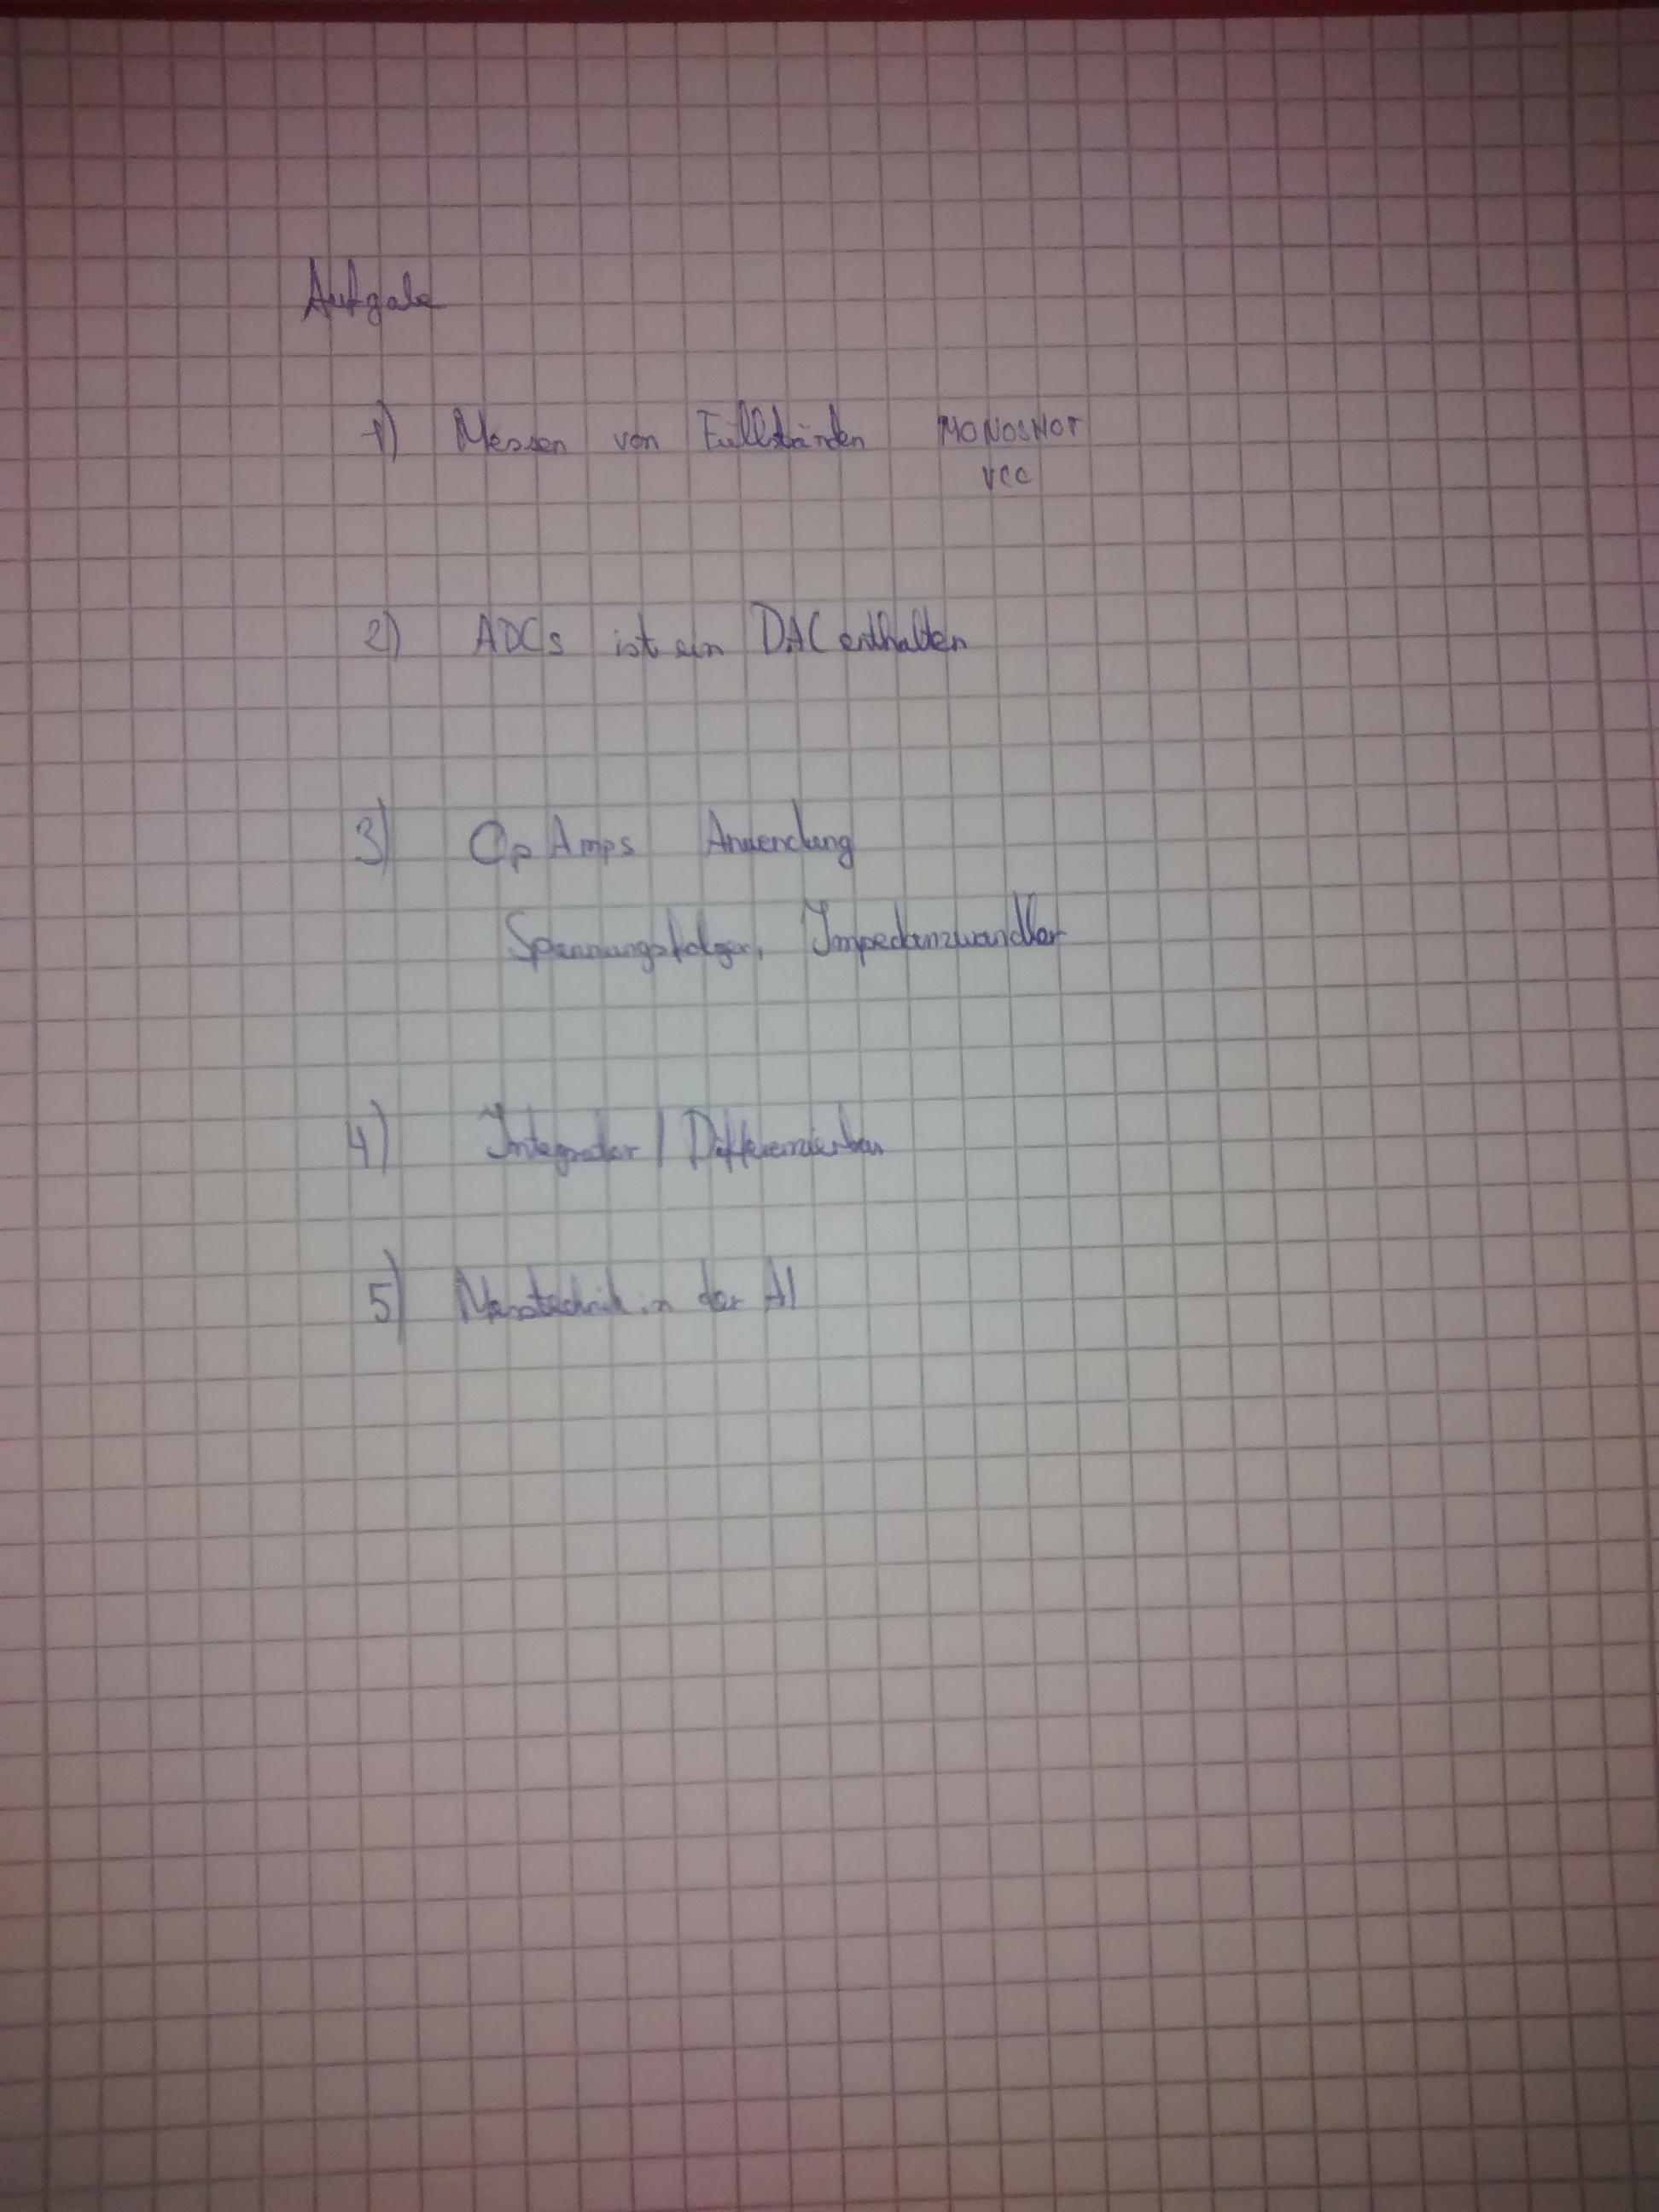 Aufgabe
1) Messen von Füllständen MONOSHOT
VCC
2) ADCs ist ein DAC enthalten
3) OpAmps Anwendung
Spannungsfolger, Impedanzwandler
4) Integrator / Differenzierer
5) Messtechnik in der AI